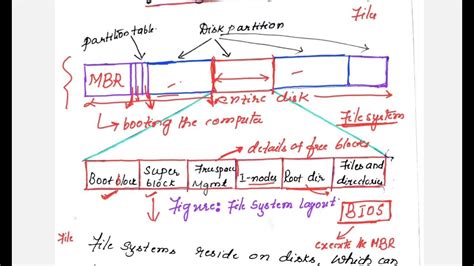 File
Partition table
Disk partition
MBR
Entire disk
File system
booting the compute
details of free blocks
Boot block
Super block
Freespace Mgmt
I-nodes
Root dir
Files and directories
Figure: File System layout
BIOS
execute the MBR
File
File systems reside on disks, which can